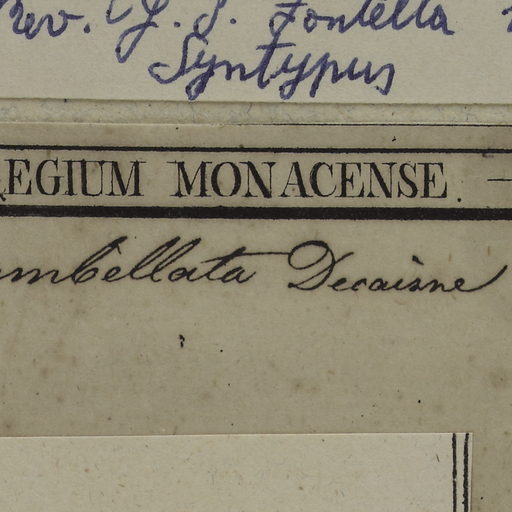 Rev. J. P. Fontella
Syntypus
REGIUM MONACENSE. —
umbellata Decaisne